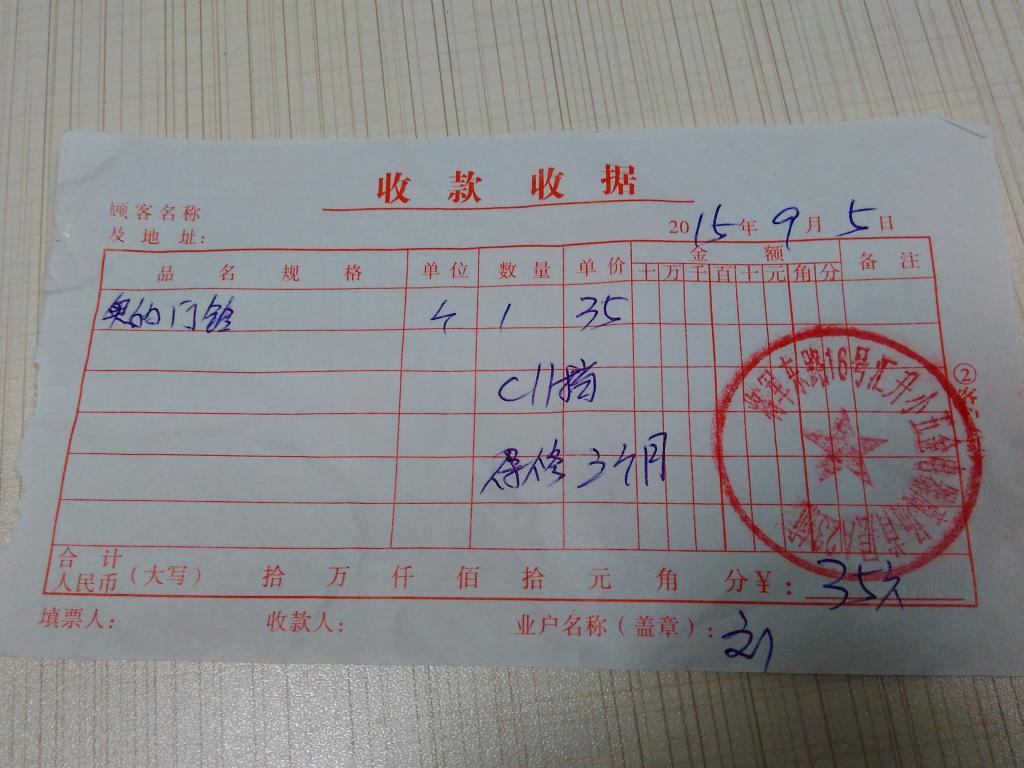 收款收据
顾客名称
及地址:
2015年9月5日
品名规格 单位 数量 单价 金额 备注
十万千百十元角分
的门铃 个 1 35
保修3个月
合计
人民币(大写) 拾 万 仟 佰 拾 元 角 分¥: 35元
填票人: 收款人: 业户名称(盖章): 刘
将军东路16号汇升小五金
②